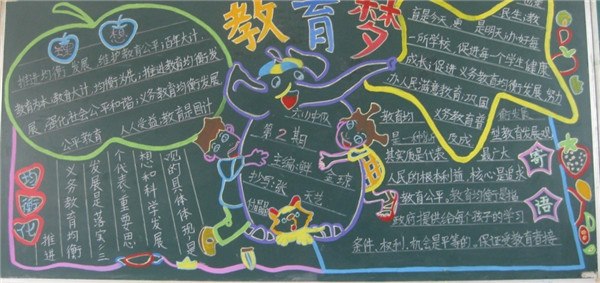 教育梦
理想
推进均衡发展，维护教育公平百年大计，
教育为本，教育大计，均衡为先，推进教育均衡发
展，强化社会公平和谐，义务教育均衡发展
公平教育 人人受益，教育是国计
民生，教
育是今天 更 是明天，办好每
一所学校，促进每一个学生健康
成长，促进义务教育均衡发展，努力
办人民满意教育，巩固
教育均
第2期
主编：
抄写：张
天艺
均衡化
推进
义务教育均衡
发展是落实三
个代表重要思
想和科学发展
观的具体体现
是一种
型教育发展观
其实质是代表 最广大
人民的根本利益，核心是追求
教育公平，教育均衡是指
政府提供给每个孩子的学习
条件、权利、机会是平等的。保证受教育者接
寄语